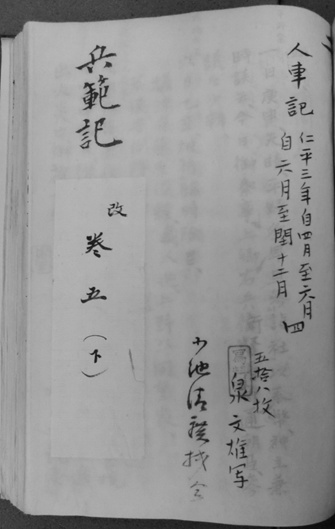 人車記 仁平三年自四月至六月 四
自六月至閏十二月
五拾八枚
泉文雄写
兵範記
改
巻五(下)